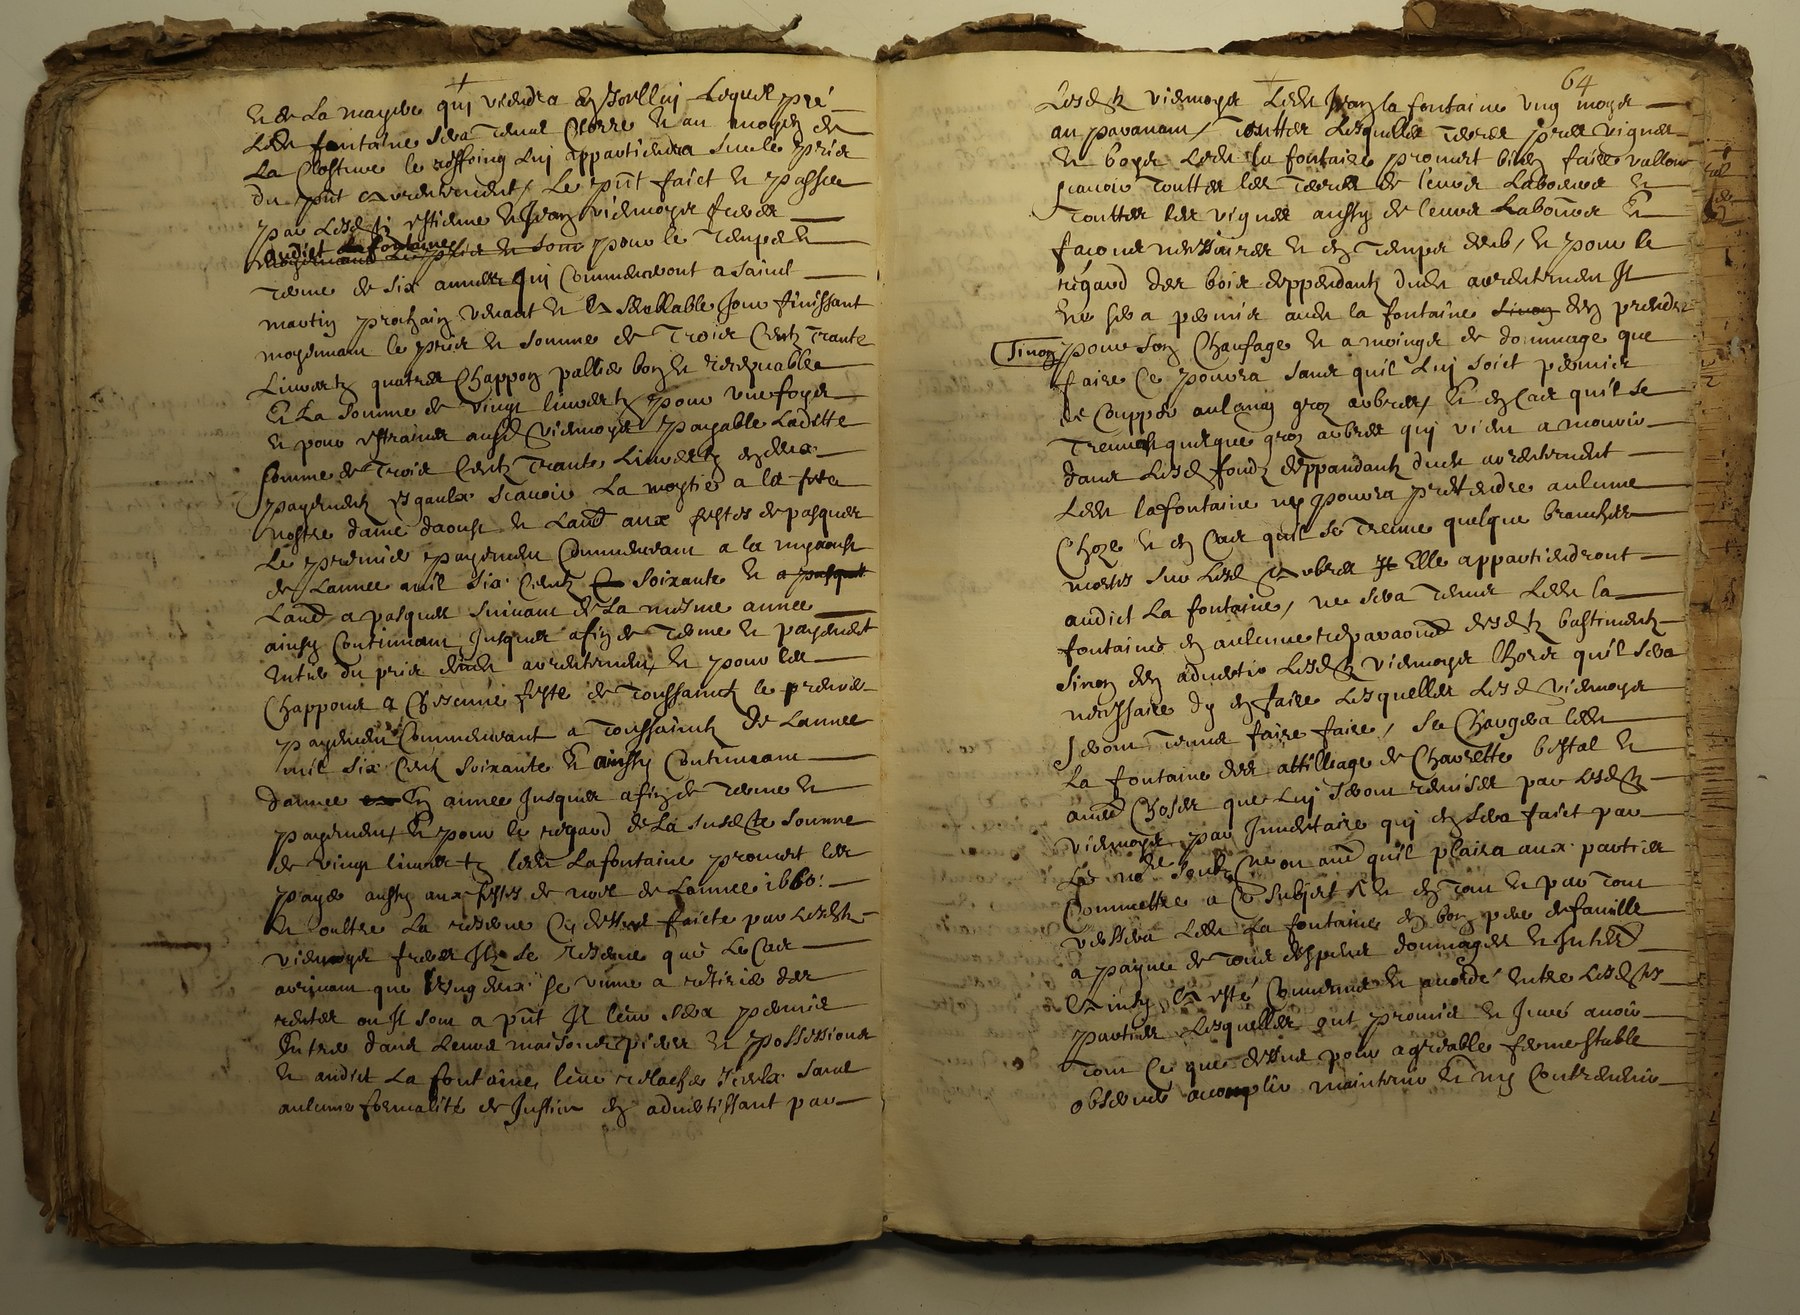 et de la mayere qui viendra en Icelluy lequel pré
led fontaine sera tenu Clorre et au moyen de
La Closture le reffoing luy appartiendra sur le prix
du pnt arrentement, le pnt faict et passé
par lesd estienne et Jean viemoyer freres
audict la fontaine
moyennant le prix et som pour le temps et
terme de six années qui Commenceront a sainct
martin prochain venant et a semblable Jour finissant
moyennant le prix et somme de Trois Centz Trante
Livres tz quatres Chappon paillé bon et recepvable
Et la somme de vingt livres tz pour une foye
et pour estraines ausd viemoyer payable Laditte
somme de Trois Centz Trante Livres tz en deux
payementz Esgaulx scavoir La moytié a la feste
nostre dame daoust et Laud aux festes de pasques
Le premier payement Commencant a la my aoust
de Lannee mil six Centz soixante et a pasques
Laud a pasques suivant de La mesme annee
ainsy Continuant Jusques a fin de terme et payement
entier du prix dud arrentement, et pour les
Chappons a Chacune feste de Toussainctz le premier
payement Commencant a Toussainctz de Lannee
mil six Centz soixante Et ainsy Continuant
dannee en annee Jusques a fin de terme et
payement, Et pour le regard de la susd somme
de vingt livres tz led Lafontaine promet les
payer aussy aux festes de noel de Lannee 1660:
Et oultre La reserve Cy dessus faicte par lesd
viemoyer freres Ilz se reserve que le Cas
arrivant que lung deux se vinne a retirer des
rentes ou Il sont a pnt Il leur sera permis
Entrer dans Leurs maisons pieces et possessions
et audict La fontaine leur relascher Icelx sans
aulcune formalité de Justice en advertissant par
64
Lesd viemoyer Led Jean la fontaine ung moye
au paravant, Touttes Lesquelles terres prez vignes
et boys led la fontaine promet bien faire valloir
scavoir Touttes les terres de leuvre Labourer et
Touttes les vignes aussy de leuvre Labourer Et
facons nessaires et en temps deub, et pour le
regard des bois deppendantz dud arrentement Il
ne sera permis aud la fontaine sinon den prendre
sinon pour son Chaufage et a moings de dommage que
faire Ce pourra sans quil luy soict permis
de Coupper aulcung gros arbres, Et en Cas quil se
Treuve quelque gros arbres qui vient a mourir
dans lesd fondz deppandantz dud arrentement
Led lafontaine ny pourra pretendre aulcune
Choze et en Cas quil se Treuve quelque branches
mortes sur lesd arbres Elle appartiendront
audict La fontaine, ne sera tenu led la
fontaine en aulcune reparaon desd bastimentz
sinon den advertir lesd viemoyer lhors quil sera
nessaire dy en faire lesquelles lesd viemoyer
seront tenus faire faire, se Chargera led
La fontaine des attillage de Charrette bestal et
aultres Choses que luy seront remises par lesd
viemoyer par Inventaire qui en sera faict par
Le ne ou aultre quil plaira aux parties
Commettre a Ce subject, Et en tout et par tout
versera led La fontaine en bon pere de famille
a payne de tous despens dommages et Interestz
Et ainsy a esté Convenu et accordé entre lesd
parties lesquelles ont promis et Juré avoir
tout Ce que dessus pour agreable ferme stable
observer acomplir maintenir Et ny Contrevenir